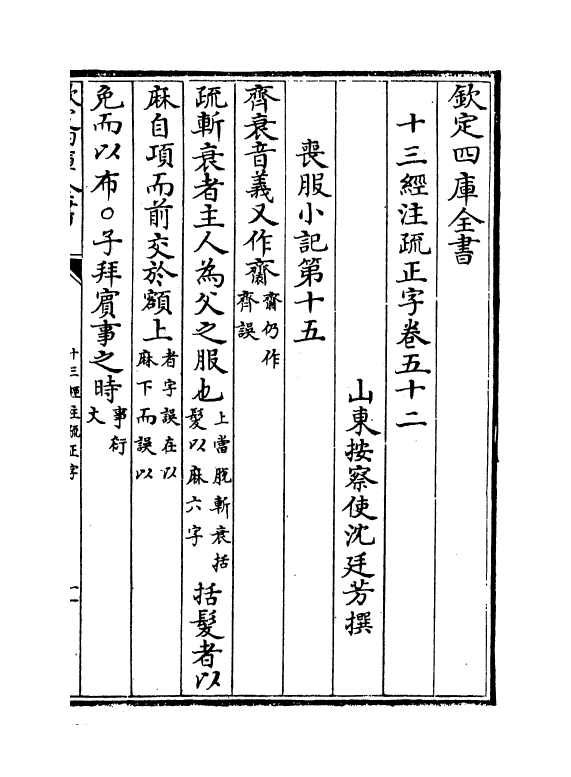 欽定四庫全書
十三經注疏正字卷五十二
山東按察使沈廷芳撰
喪服小記第十五
齊衰音義又作齋齋仍作齊誤
疏斬衰者主人為父之服也上當脫斬衰括髪以麻六字括髮者以
麻自項而前交於額上者字誤在以麻下而誤以
免而以布○子拜賓事之時事衍文
十三經注疏正字